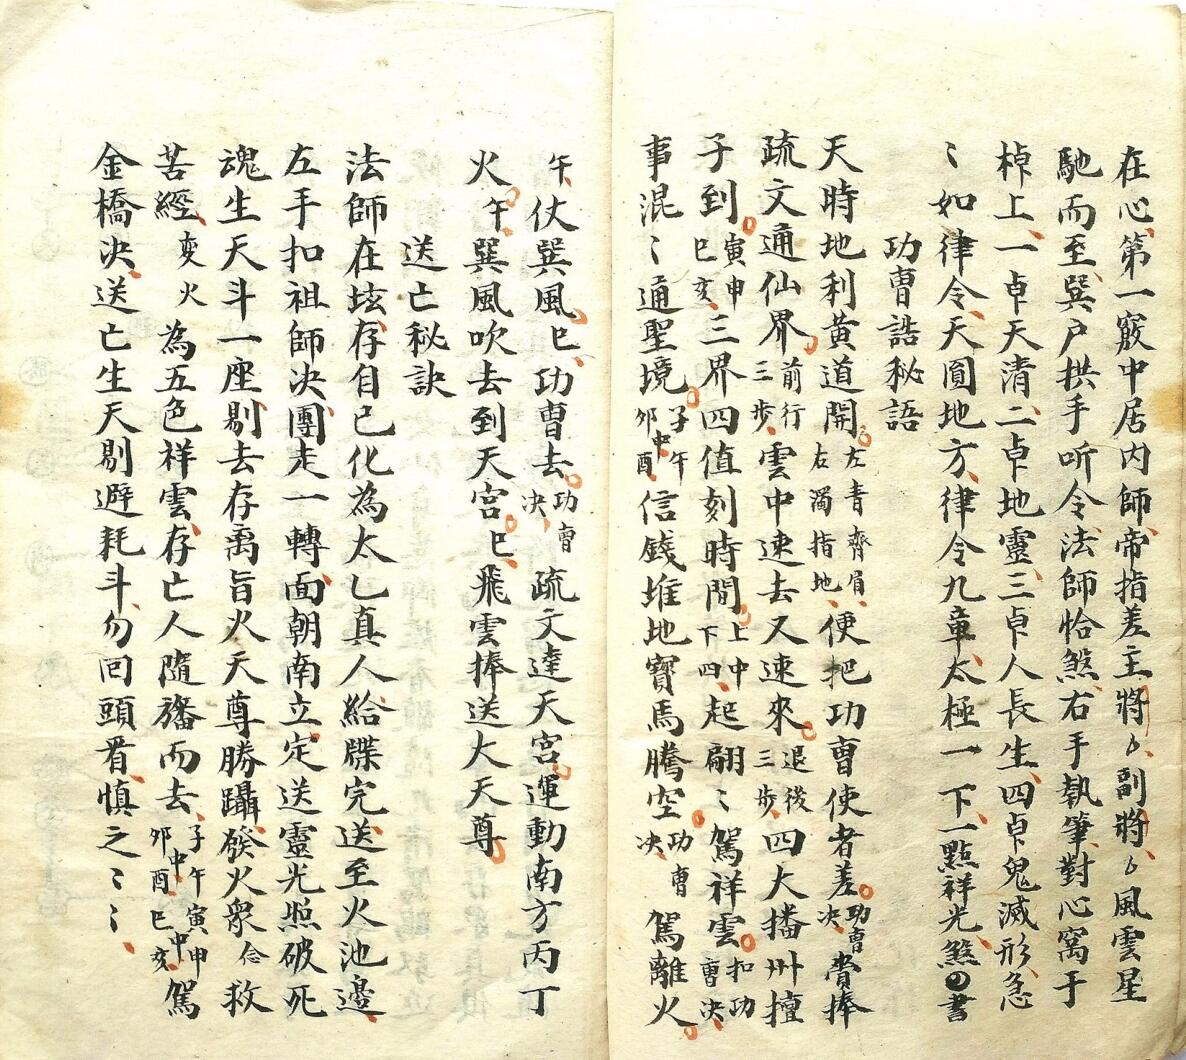 在心第一竅中居内師帝指差主將々副將々風雲星
馳而至巽户拱手听令法師恰煞右手執筆對心窩于
棹上一卓天清二卓地靈三卓人長生四卓鬼滅形急
〻如律令天圓地方律令九章太極一下一點祥光煞の書
功曹誥秘語
天時地利黄道開左青齊眉右濁指地便把功曹使者差功曹决賫捧
疏文通仙界前行三步雲中速去又速來退後三步四大播州擅
子到寅申巳亥三界四值刻時間上中下四起翩〻駕祥雲扣功曹决
事混〻通聖境子午中卯酉信錢堆地寶馬騰空功曹决駕離火
午仗巽風巳功曹去功曹决疏文達天宮運動南方丙丁
火午巽風吹去到天宮巳飛雲捧送大天尊
送亡秘訣
法師在垓存自已化為太乙真人給牒完送至火池邊
左手扣祖師决團走一轉面朝南立定送靈光照破死
魂生天斗一座剔去存禹旨火天尊勝躡發火衆念救
苦經変火為五色祥雲存亡人隨旛而去子午寅申中中卯酉巳亥駕
金橋决送亡生天剔避耗斗勿回頭看慎之〻〻